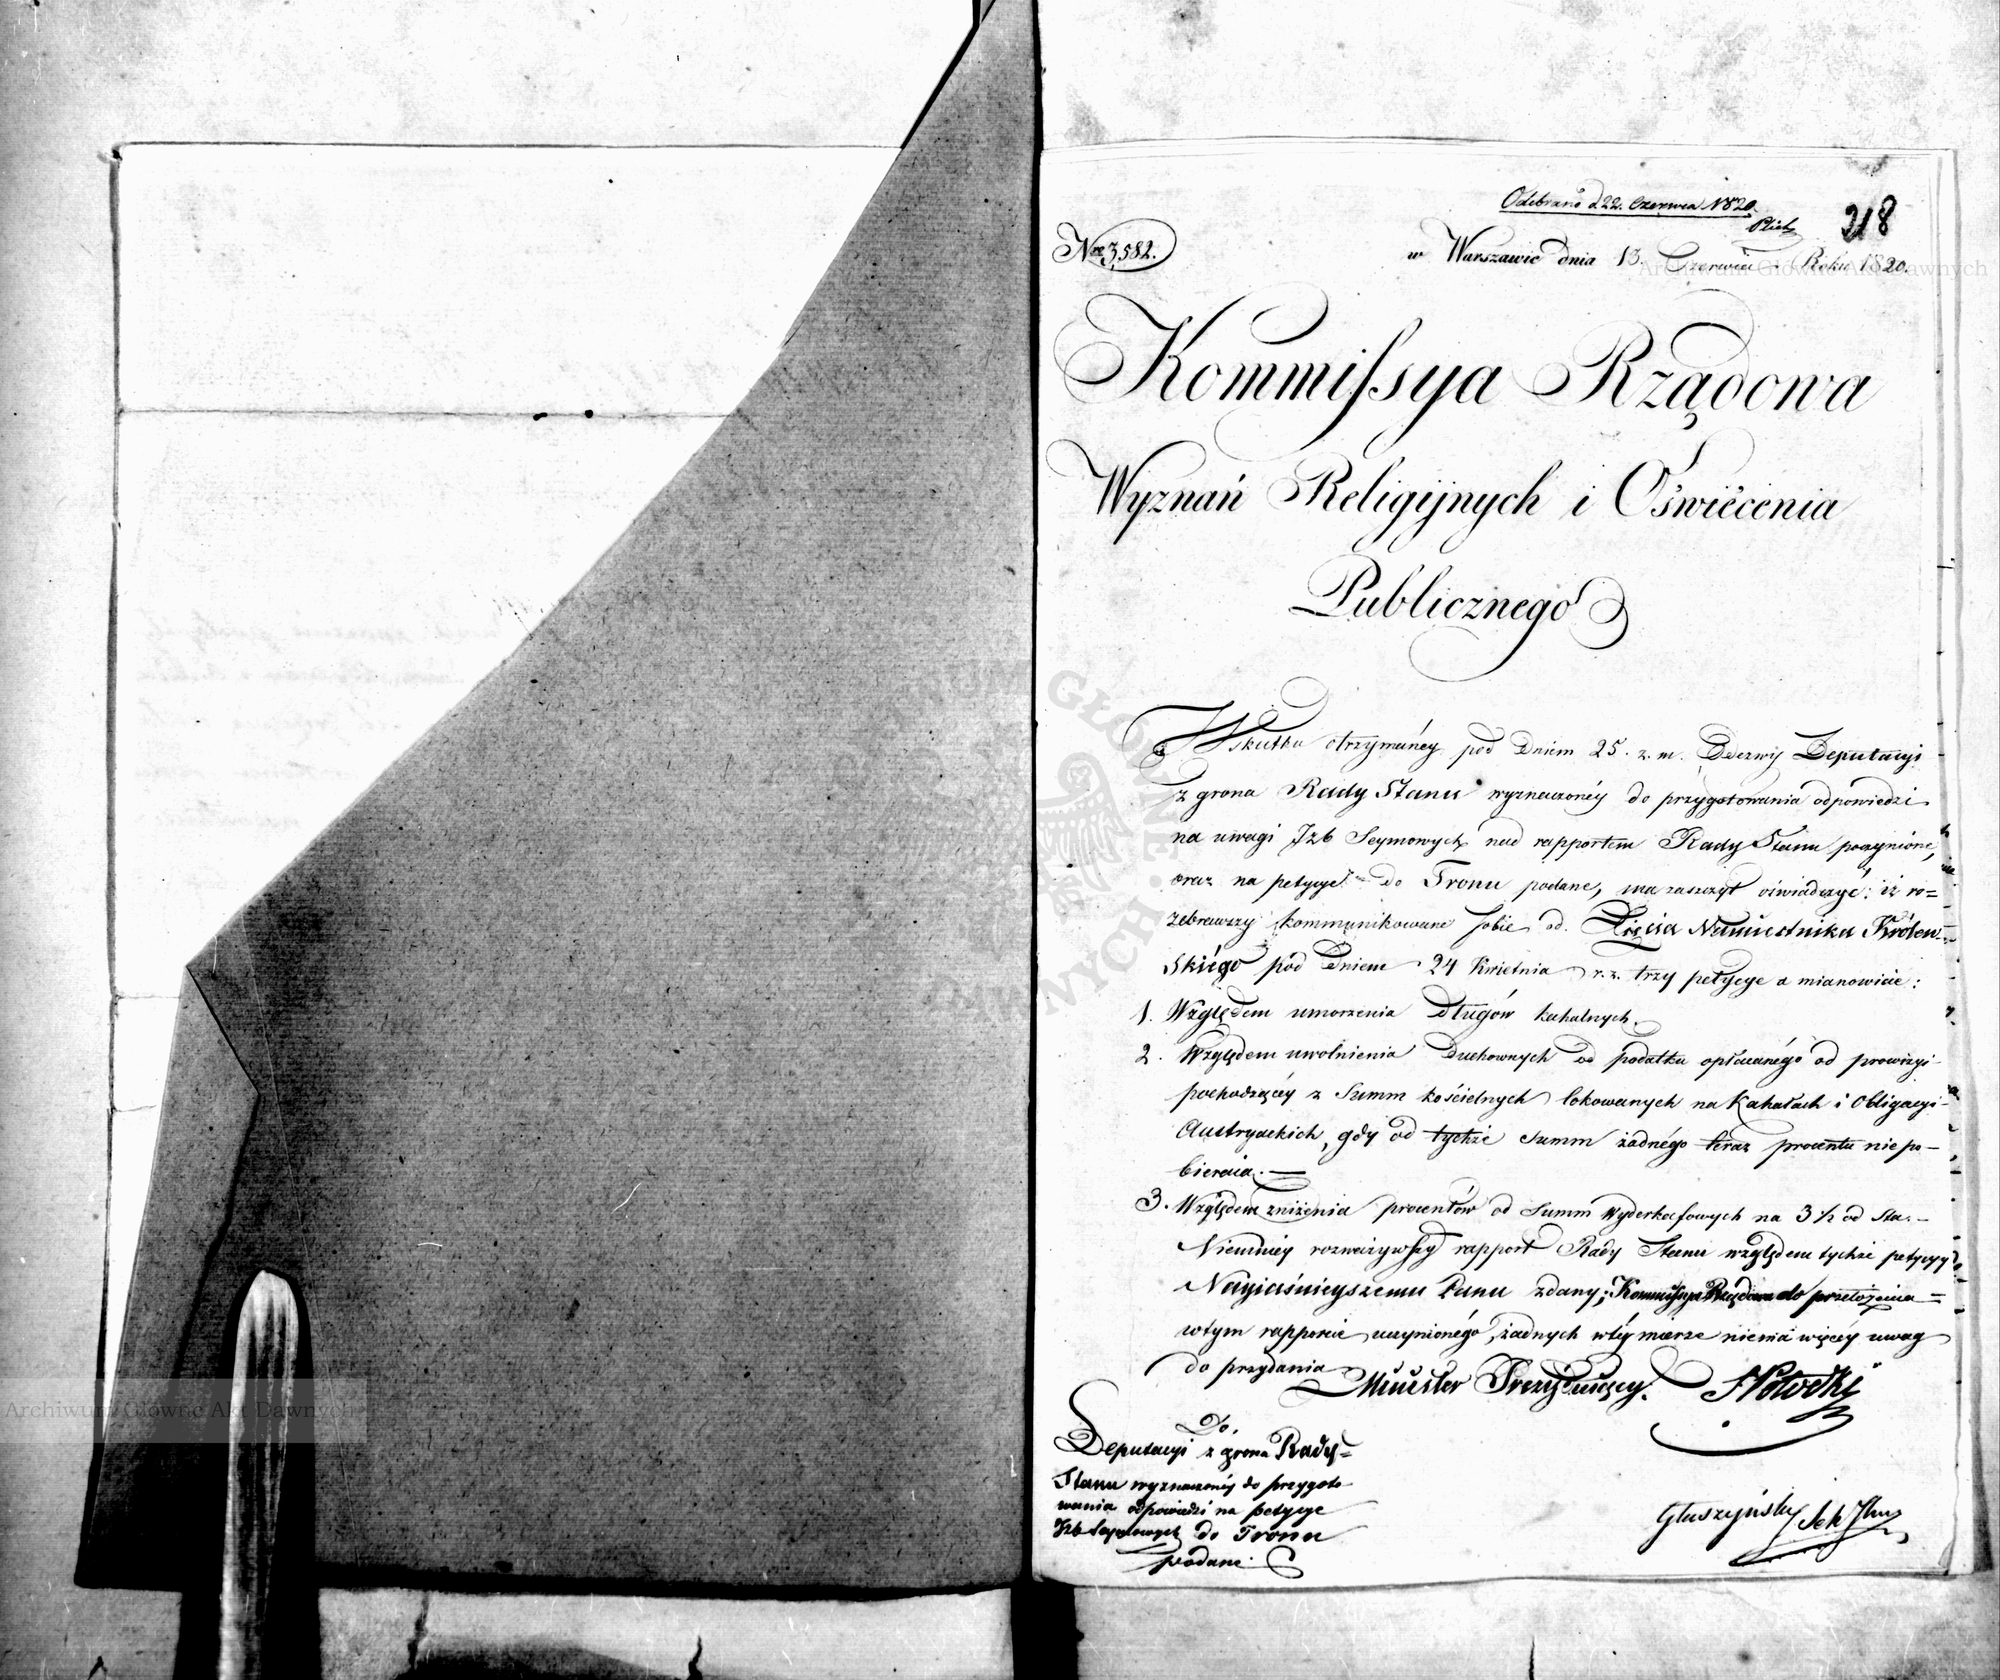 Odebrano d 22. Czerwca 1820.
218
Nro 3,582.
w Warszawie dnia 13. Czerwca Roku 1820.
Kommissya Rządowa
Wyznań Religijnych i Oświécenia
Publicznego
W skutku otrzymanéy pod Dniem 25. z. m. Odezwy Deputacyi
z grona Rady Stanu wyznaczonéy do przygotowania odpowiedzi
na uwagi Izb Seymowych nad rapportem Rady Stanu poczynione,
oraz na petycye do Tronu podane, ma zaszczyt oświadczyć: iż ro=
zebrawszy kommunikowane sobie od Xięcia Namiestnika Królew=
skiégo pod Dniem 24 Kwietnia r. z. trzy petycye a mianowicie:
1. Względem umorzenia Długów kahalnych.
2. Względem uwolnienia Duchownych od podatku opłacanégo od prowizyi
pochodzącéy z Summ kościelnych lokowanych na Kahałach i Obligacyi
Austryackich, gdy od tychże Summ żadnégo teraz procentu nie po-
bieraią.
3. Względem zniżenia procentów od Summ Wyderkafowych na 3 1/2 od Sta.
Niemniéy rozważywszy rapport Rady Stanu względem tychże petycyy
Nayiaśnieyszemu Panu zdany; Kommissya Rządowa do przełożenia
w tym rapporcie uczynionégo, żadnych w téy mierze niema więcéy uwag
do przydania
Minister Prezyduiący.
Do,
Deputacyi z grona Rady
Stanu wyznaczonéy do przygoto
wania odpowiedzi na petycye
Izb Seymowych do Tronu
podane.
Głuszyński Sek Jlny
Archiwum Główne Akt Dawnych
Archiwum Główne Akt Dawnych